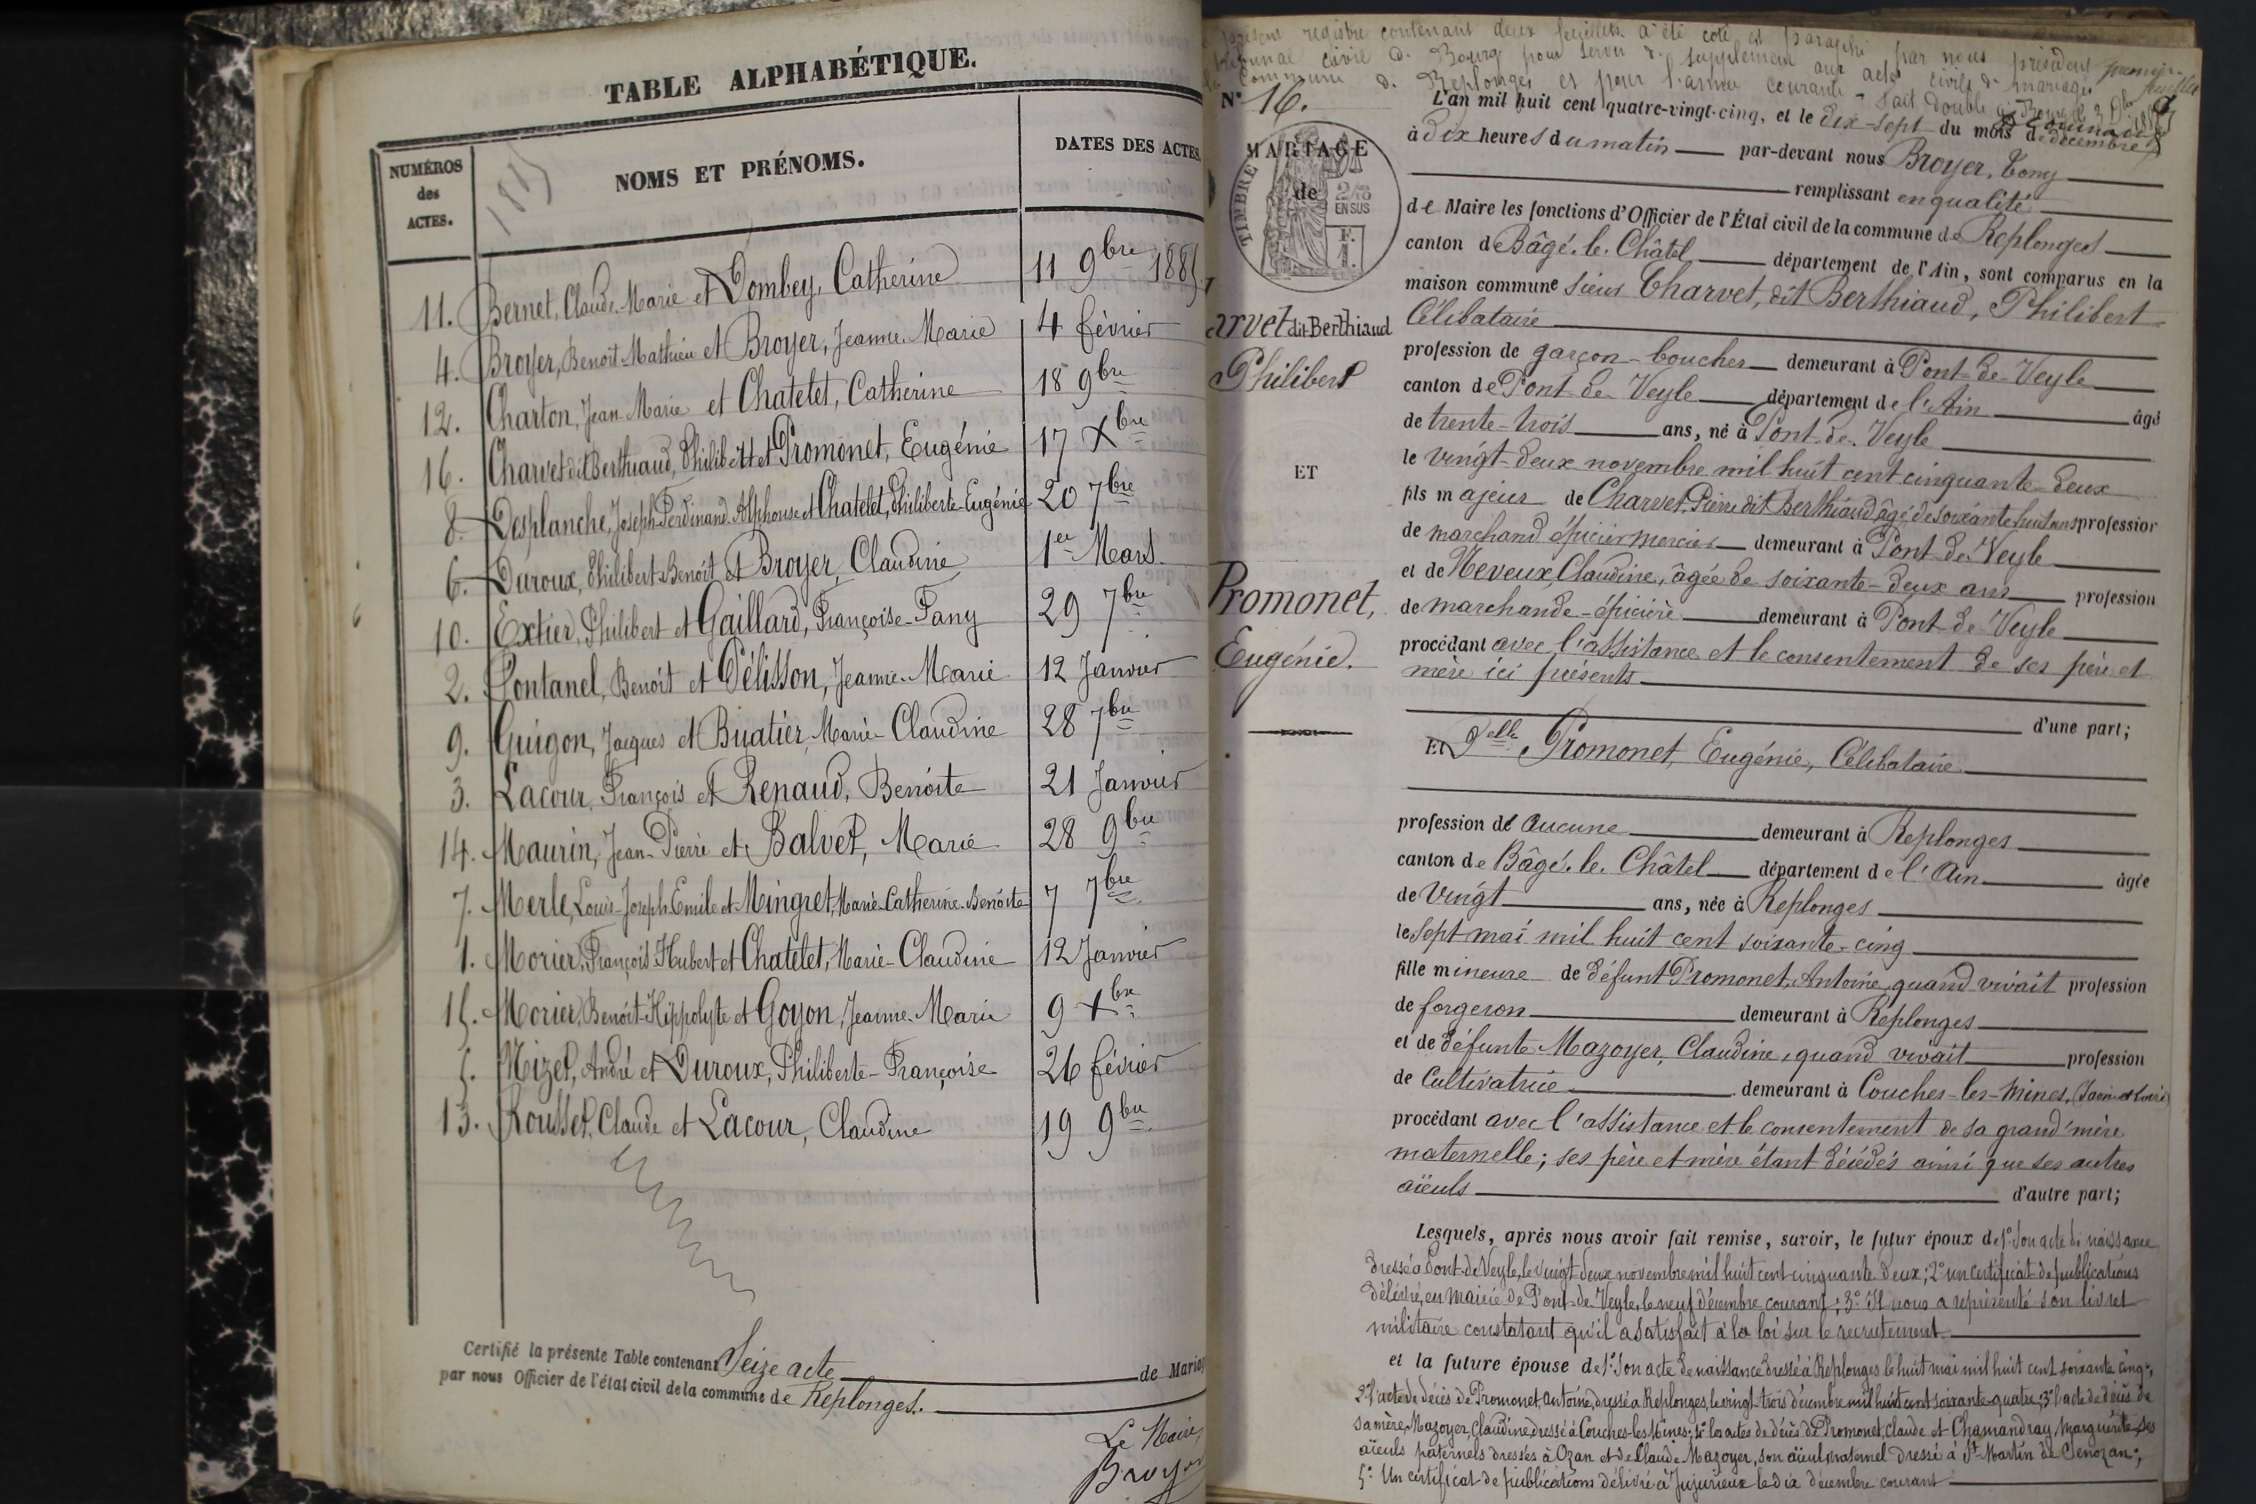 TABLE ALPHABÉTIQUE.
NUMÉROS
des
ACTES.
NOMS ET PRÉNOMS.
DATES DES ACTES
1885
11. Bernet, Claude-Marie et Dombey, Catherine 11 9bre 1885
4. Broyer, Benoit-Mathieu et Broyer, Jeanne-Marie 4 février
12. Charton, Jean-Marie et Chatelet, Catherine 18 9bre
16. Charvet dit Berthiaud, Philibert et Promonet, Eugénie 17 Xbre
8. Desplanche, Joseph-Ferdinand-Alphonse et Chatelet, Philiberte-Eugénie 20 7bre
6. Duroux, Philibert-Benoit et Broyer, Claudine 1er Mars
10. Extier, Philibert et Gaillard, Françoise-Fany 29 7bre
2. Fontanel, Benoit et Pélisson, Jeanne-Marie 12 Janvier
9. Guigon, Jacques et Buatier, Marie-Claudine 28 7bre
3. Lacour, François et Renaud, Benoite 21 Janvier
14. Maurin, Jean-Pierre et Balvet, Marie 28 9bre
7. Merle, Louis-Joseph-Emile et Mingret, Marie-Catherine-Benoite 7 7bre
1. Morier, François-Hubert et Chatelet, Marie-Claudine 12 Janvier
15. Morier, Benoit-Hippolyte et Goyon, Jeanne-Marie 9 Xbre
5. Nizet, André et Duroux, Philiberte-Françoise 26 février
13. Rousset, Claude et Lacour, Claudine 19 9bre
Certifié la présente Table contenant Seize acte de Maria
par nous Officier de l'état civil de la commune de Replonges.
Le Maire,
Broyer
présent registre contenant deux feuillets a été coté et paraphé par nous président premier
tribunal civil de Bourg pour servir de supplément aux actes civils de mariage feuillet
Commune de Replonges et pour l'année courante - fait double à Bourg le 3 Xbre 1885
N° 16.
MARIAGE
de
TIMBRE
2/10
EN SUS
F.
1.
arvet dit Berthiaud
Philibert
ET
Promonet,
Eugénie.
L'an mil huit cent quatre-vingt-cinq, et le dix-sept du mois de décembre
à dix heures du matin par-devant nous Broyer, Tony
remplissant en qualité
de Maire les fonctions d'Officier de l'État civil de la commune de Replonges
canton de Bâgé-le-Châtel département de l'Ain, sont comparus en la
maison commune sieur Charvet, dit Berthiaud, Philibert
Célibataire
profession de garçon-boucher demeurant à Pont-de-Veyle
canton de Pont-de-Veyle département de l'Ain âgé
de trente-trois ans, né à Pont-de-Veyle
le vingt-deux novembre mil huit cent cinquante-deux
fils majeur de Charvet, Pierre dit Berthiaud âgé de soixante huit ans profession
de marchand épicier mercier demeurant à Pont-de-Veyle
et de Neveux, Claudine, âgée de soixante-deux ans profession
de marchande-épicière demeurant à Pont-de-Veyle
procédant avec l'assistance et le consentement de ses père et
mère ici présents
d'une part;
Et Delle Promonet, Eugénie, Célibataire
profession de aucune demeurant à Replonges
canton de Bâgé-le-Châtel département de l'Ain âgée
de vingt ans, née à Replonges
le sept mai mil huit cent soixante-cinq
fille mineure de défunt Promonet, Antoine, quand vivait profession
de forgeron demeurant à Replonges
et de défunte Mazoyer, Claudine, quand vivait profession
de Cultivatrice demeurant à Couches-les-Mines, (Saône et Loire)
procédant avec l'assistance et le consentement de sa grand'mère
maternelle; ses père et mère étant décédés ainsi que ses autres
aïeuls d'autre part;
Lesquels, après nous avoir fait remise, savoir, le futur époux de 1° son acte de naissance
dressé à Pont-de-Veyle, le vingt deux novembre mil huit cent cinquante deux; 2° un certificat de publications
délivré en mairie de Pont-de-Veyle, le neuf décembre courant; 3° il nous a représenté son livret
militaire constatant qu'il a satisfait à la loi sur le recrutement.
et la future épouse de 1° son acte de naissance dressé à Replonges le huit mai mil huit cent soixante cinq;
2° l'acte de décès de Promonet, Antoine, dressé à Replonges, le vingt-trois décembre mil huit cent soixante-quatre; 3° l'acte de décès de
sa mère, Mazoyer, Claudine dressé à Couches-les-Mines; 4° les actes de décès de Promonet, Claude et Chamandray, Marguerite ses
aïeuls paternels dressés à Ozan et de Claude Mazoyer, son aïeul maternel dressé à St Martin de Senozan;
5° Un certificat de publications délivré à Jujurieux le dix décembre courant